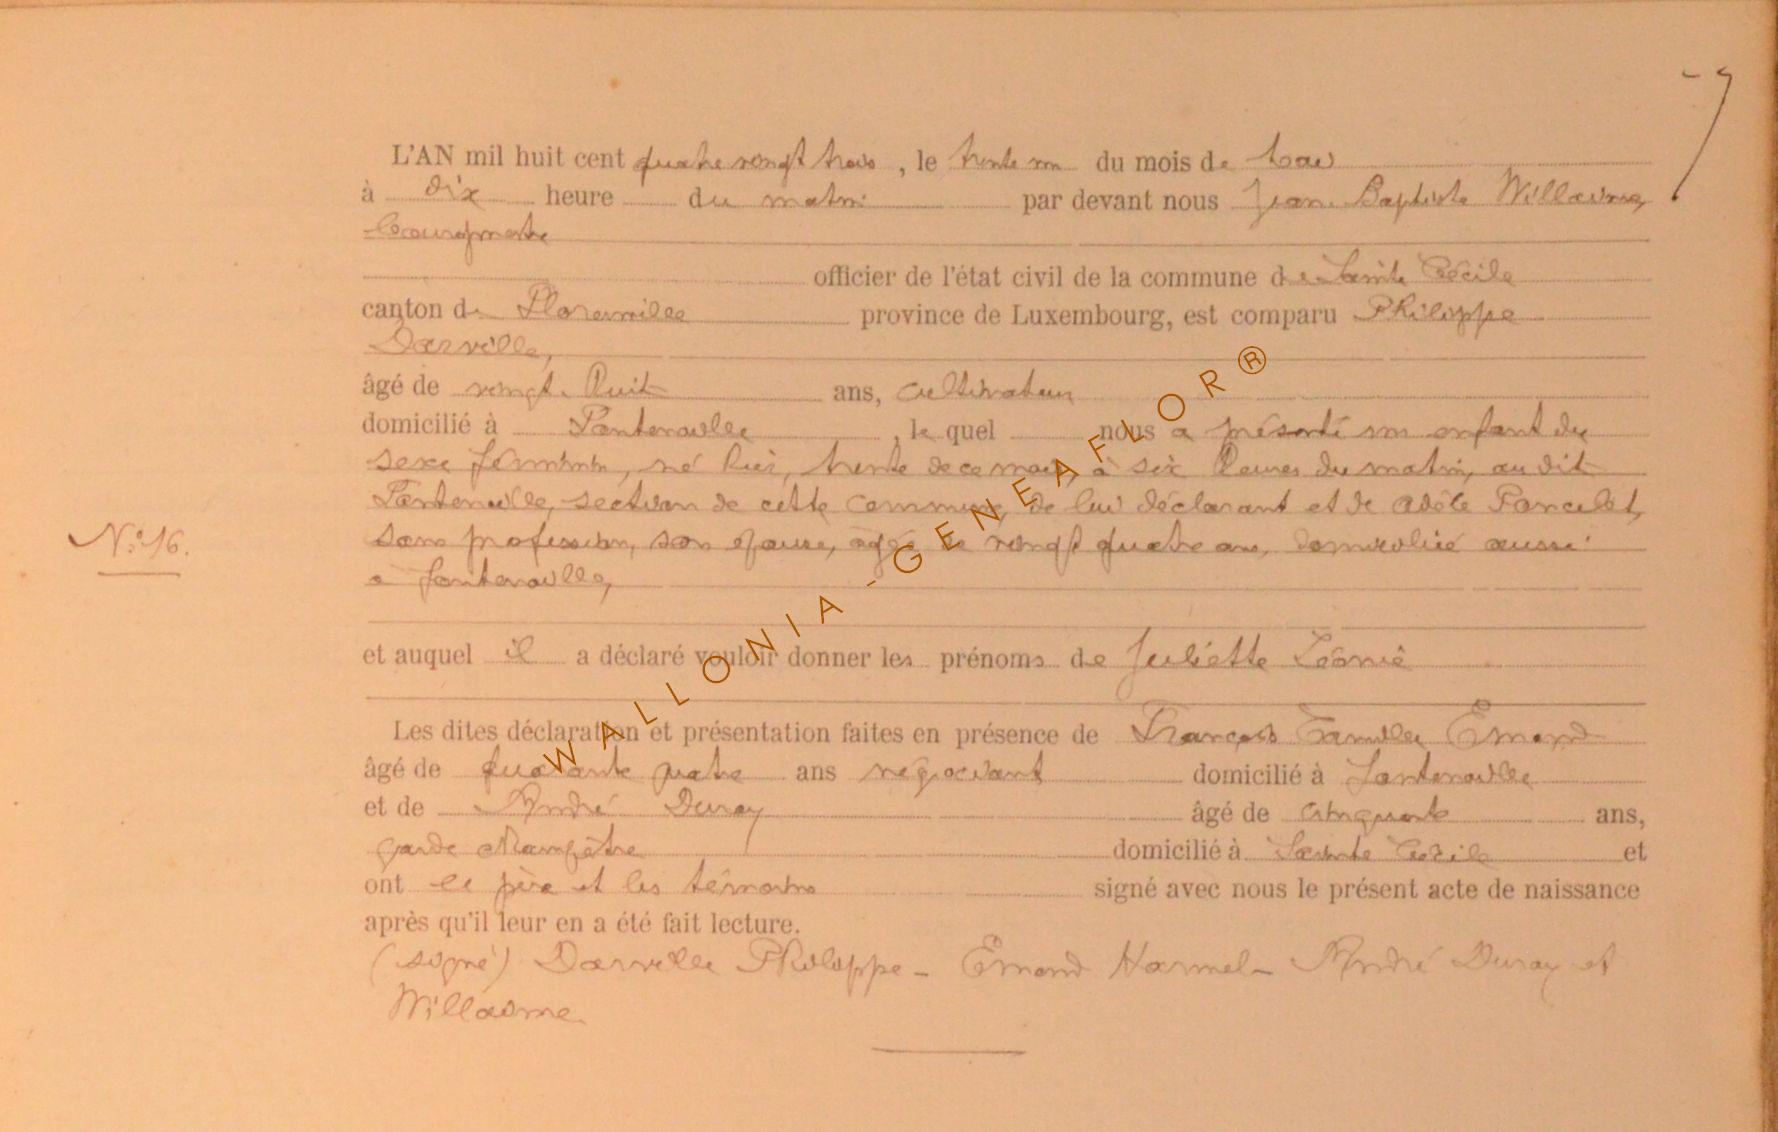 7
L'AN mil huit cent quatre vingt trois, le trente un du mois de
à dix heure du matin par devant nous Jean Baptiste Willaime,
Bourgmestre
officier de l'état civil de la commune de Sainte Cécile
canton de Florenville province de Luxembourg, est comparu Philippe
Darville,
âgé de vingt huit ans, cultivateur
domicilié à Fontenoille, le quel nous a présenté un enfant du
sexe féminin, né hier, trente de ce mois, à six heures du matin, au dit
Fontenoille, section de cette commune, de lui déclarant et de Adèle Poncelet,
sans profession, son épouse, âgée de vingt quatre ans, domiciliée aussi
à Fontenoille,
N° 16.
et auquel il a déclaré vouloir donner les prénoms de Juliette Léonie
Les dites déclaration et présentation faites en présence de François Camille Emond
âgé de quarante quatre ans négociant domicilié à Fontenoille
et de André Duroy âgé de cinquante ans,
garde champêtre domicilié à Sainte Cécile et
ont le père et les témoins signé avec nous le présent acte de naissance
après qu'il leur en a été fait lecture.
(signé) Darville Philippe - Emond Harmel - André Duroy et
Willaime
WALLONIA-GENEAFLOR®